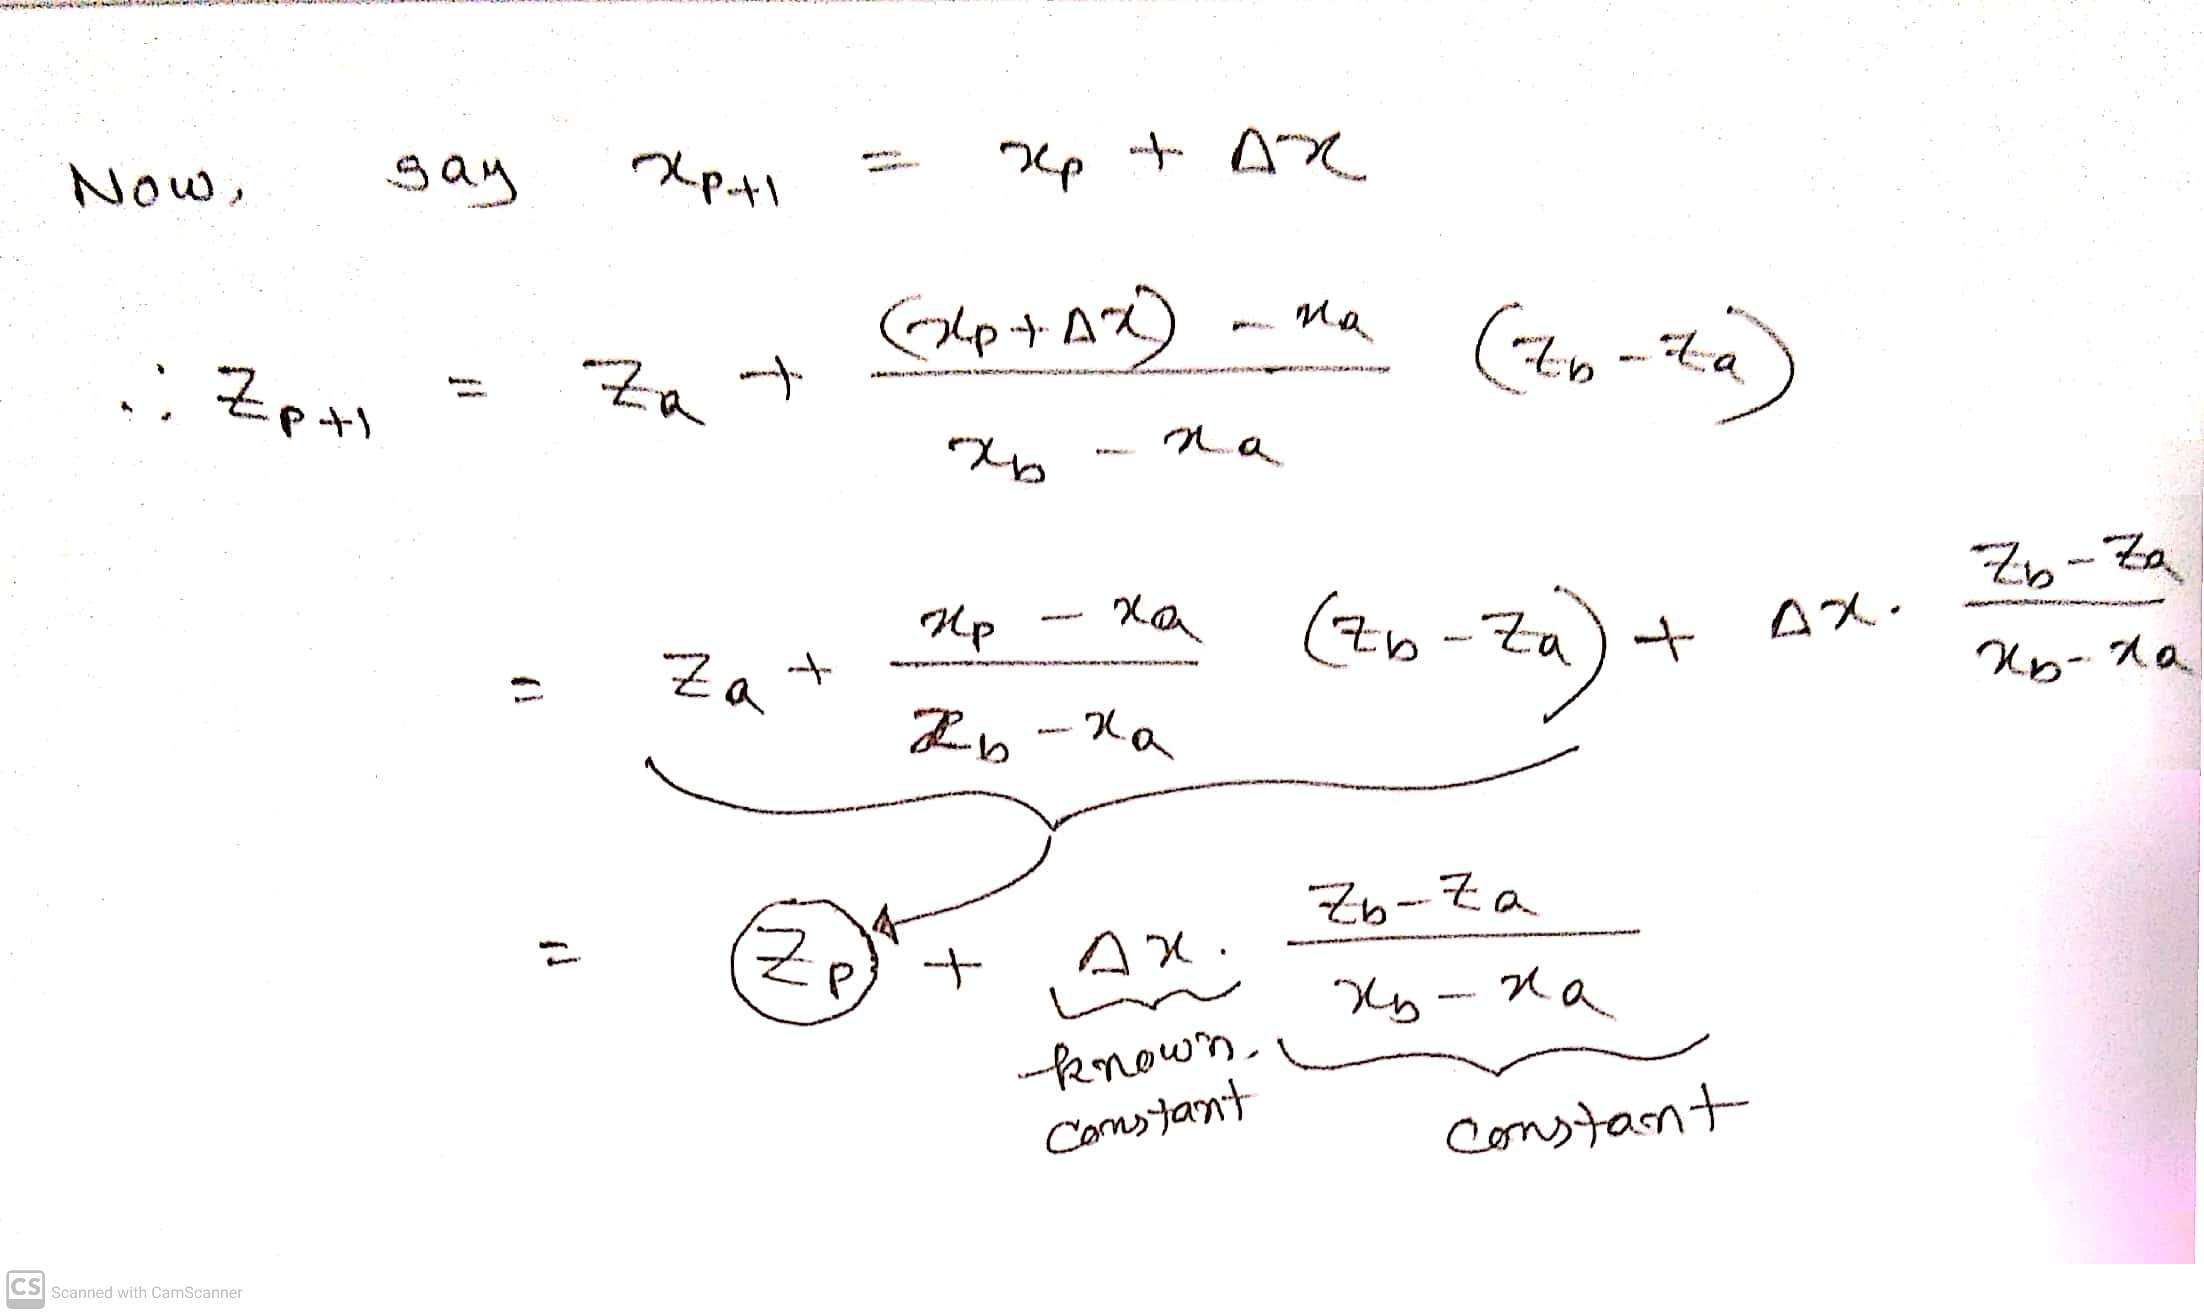 Now, say xₚ₊₁ = xₚ + Δx
∴ zₚ₊₁ = zₐ + ((xₚ + Δx) - xₐ)/(x_b - xₐ) (z_b - zₐ)
= zₐ + (xₚ - xₐ)/(x_b - xₐ) (z_b - zₐ) + Δx · (z_b - zₐ)/(x_b - xₐ)
= zₚ + Δx · (z_b - zₐ)/(x_b - xₐ)
known constant
constant
CS Scanned with CamScanner